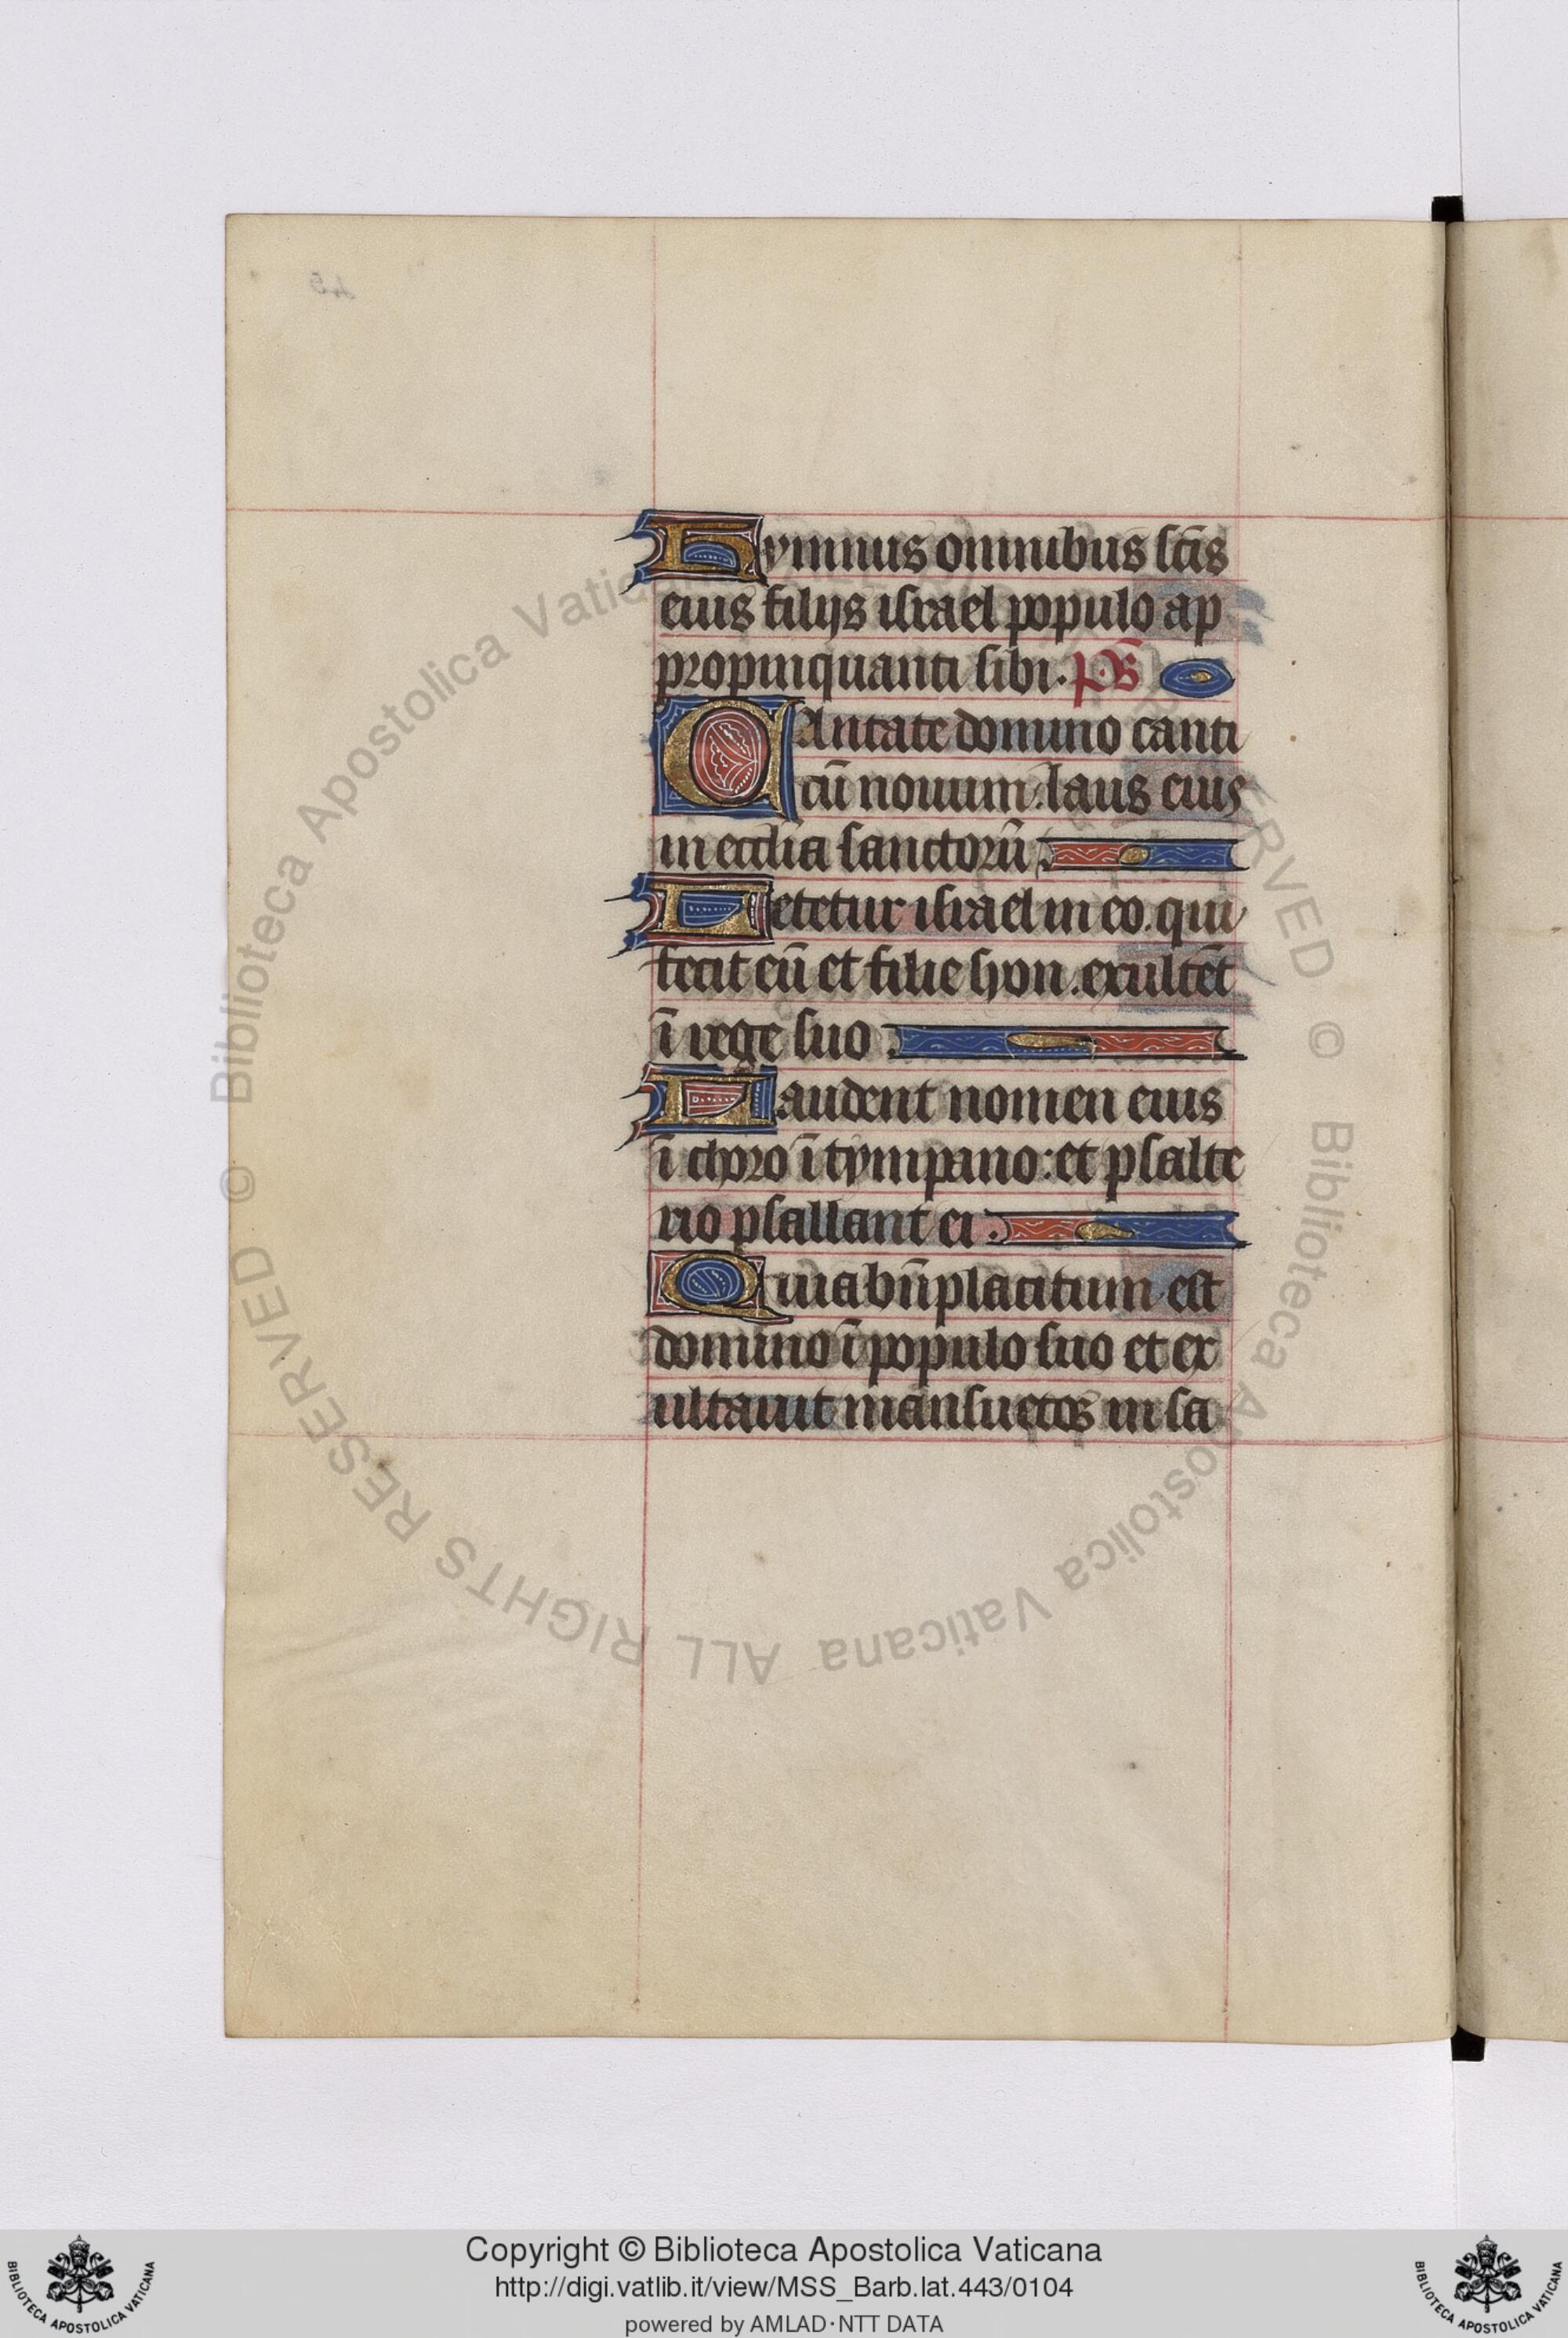 Hymnus omnibus sc̄is
eius filijs israel populo ap
propinquanti sibi. p̄s
CAntate domino canti
cū nouum. laus eius
in ecclīa sanctorū
Letetur israel in eo. qui
fecit eū et filie syon. exultēt
ī rege suo
Laudent nomen eius
ī choro ī tympano: et psalte
rio psallant ei
Quia bn̄placitum est
domino ī populo suo et ex
ultauit mansuetos in sa
45
© Biblioteca Apostolica Vaticana ALL RIGHTS RESERVED © Biblioteca Apostolica Vaticana ALL RIGHTS RESERVED
Copyright © Biblioteca Apostolica Vaticana
http://digi.vatlib.it/view/MSS_Barb.lat.443/0104
powered by AMLAD·NTT DATA
BIBLIOTECA APOSTOLICA VATICANA
BIBLIOTECA APOSTOLICA VATICANA